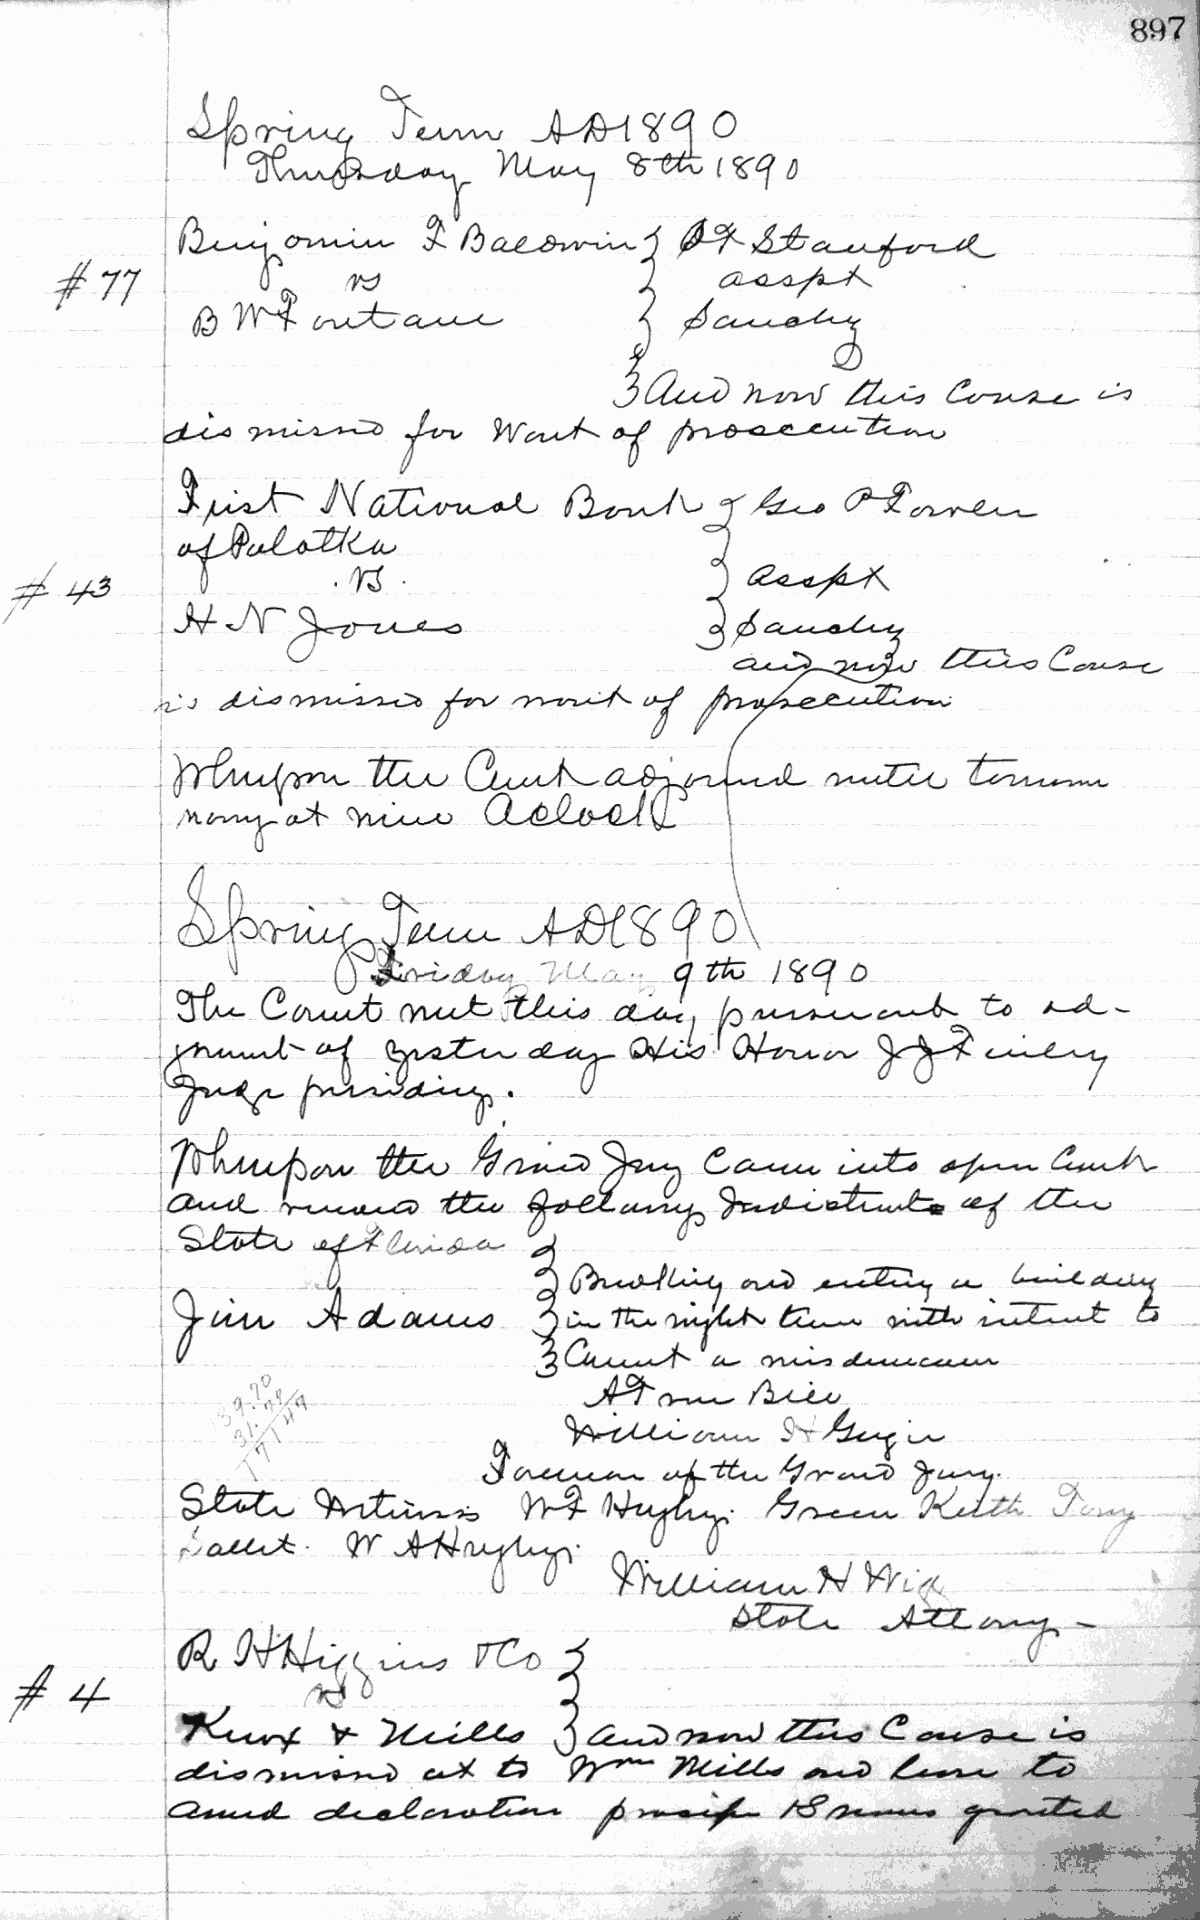 897
Spring Term AD 1890
Thursday May 8th 1890
Benjamin F Baldwin } F Stanford
#77 vs asspt
B W Fontane } Sanchy
} And now this Couse is
dismissed for Want of prosecution
First National Bank } Geo P Fowler
of Palatka
#43 vs } asspt
H N Jones } Sanchy
and now this Couse
is dismissed for want of prosecution
Whupon the Court adjorned until tomorrow
morng at nine Oclock
Spring Term AD 1890
Friday May 9th 1890
The Court met this day pursuant to ad-
jrnment of yesterday His Honor J J Finley
Judge presiding.
Whreupon the Grand Jury Came into open Court
and the following Indictments of the
State of Florida }
} Breaking and entering a building
Jim Adams } in the night time with intent to
} Commit a misdemeanor
39.70
31.79
7149
A True Bill
William H
Foreman of the Grand Jury.
State Witness W F Green Keith Tony
W A
William H Wigg
State Attorny -
R H Higgins & Co }
#4 vs
Knox & Mills } and now this Couse is
dismissed as to Wm Mills and leave to
amend declaration granted